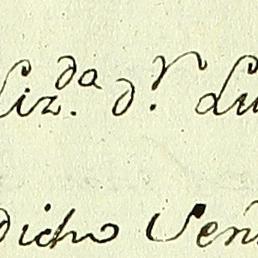 Liz.da d.r Lu
dicho Señ